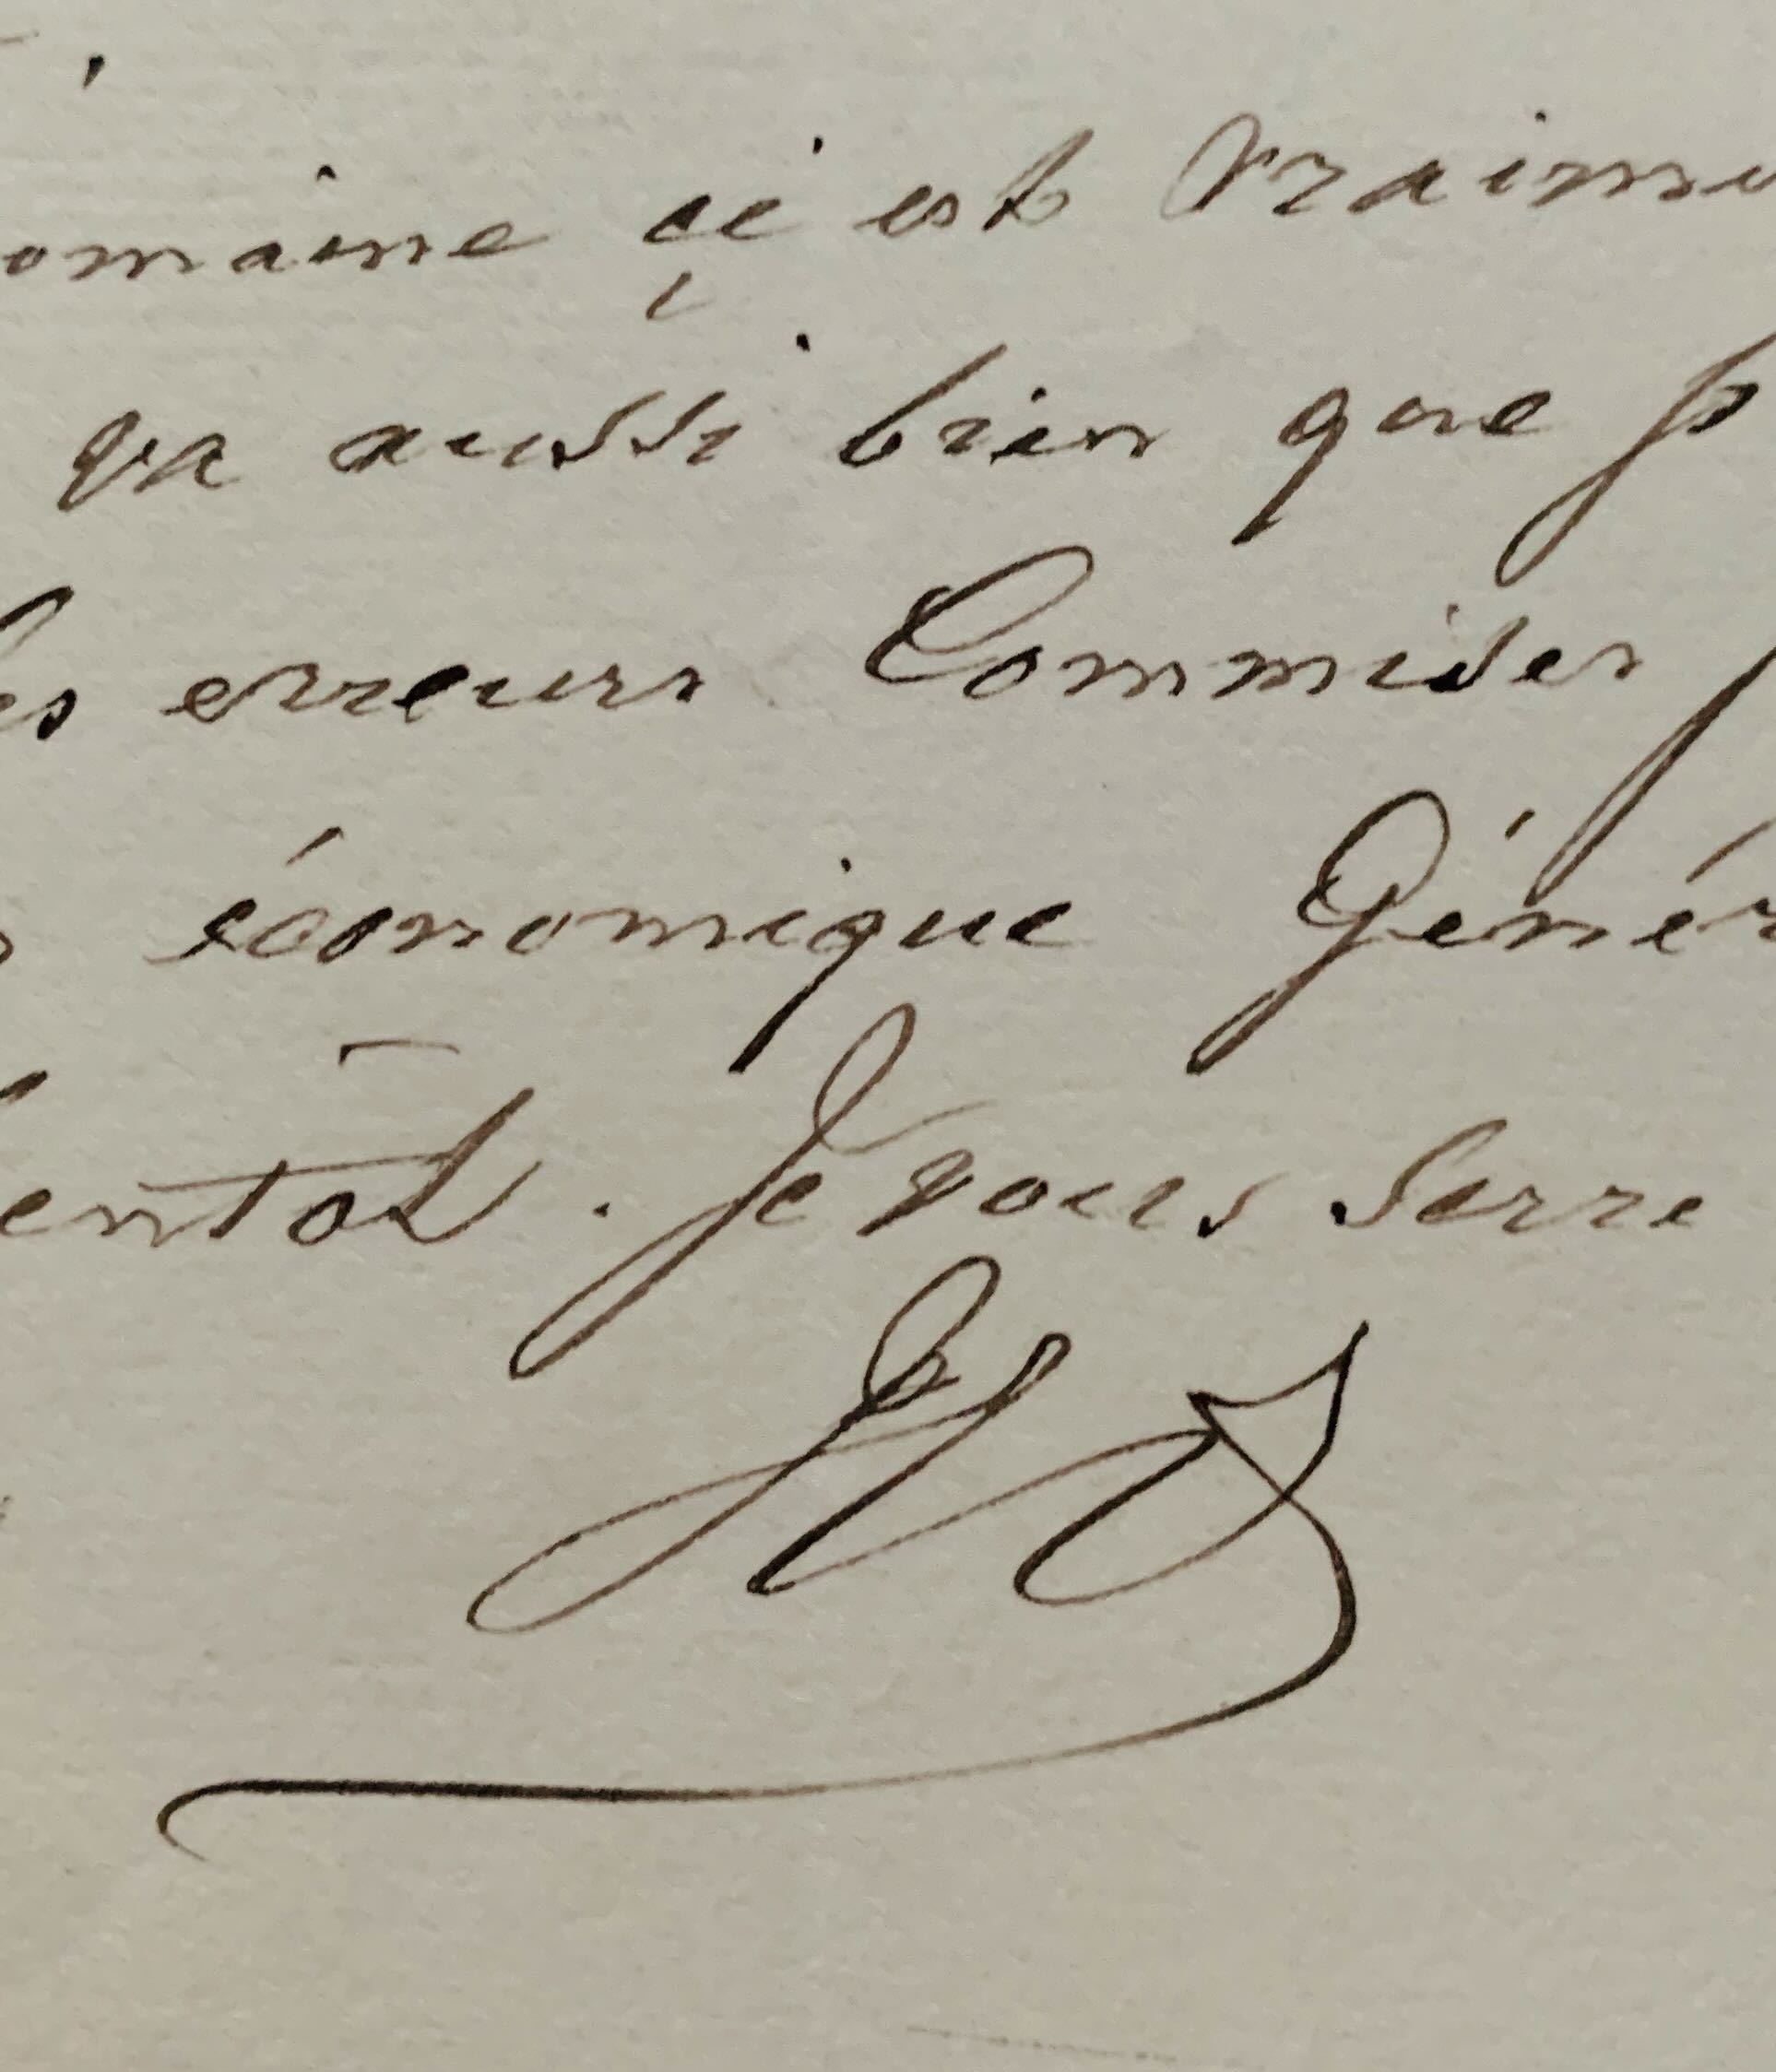 omaine çi est vraime
va aussi bien que p
es erreurs Commises p
économique Génér
entôt. Je vous serre